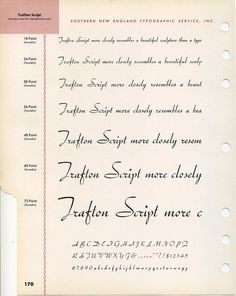 Trafton Script
SOUTHERN NEW ENGLAND TYPOGRAPHIC SERVICE, INC.
18 Point
Trafton Script more closely resembles a beautiful sculpture than a type
24 Point
Trafton Script more closely resembles a beautiful sculp
30 Point
Trafton Script more closely resembles a beaut
36 Point
Trafton Script more closely resembles a bea
48 Point
Trafton Script more closely resem
60 Point
Trafton Script more closely
72 Point
Trafton Script more c
A B C D E F G H I J K L M N O P Q
R S T U V W X Y Z &
abcdefghijkl
170